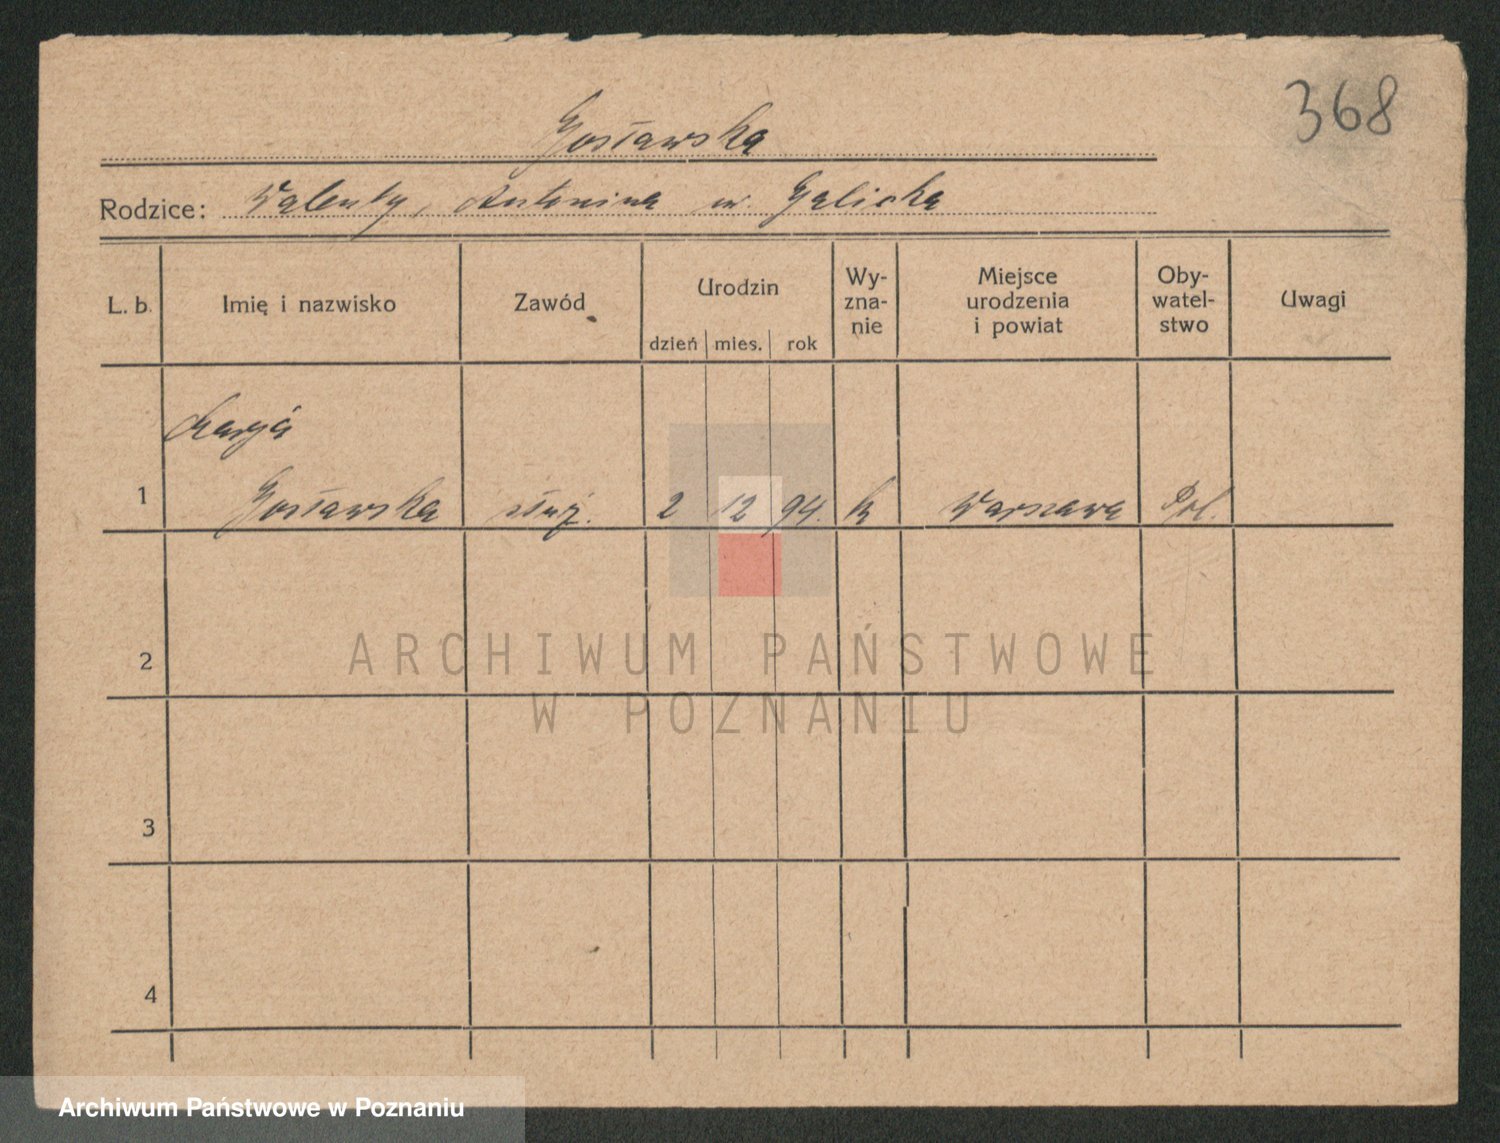 368
Gosławska
Rodzice: Walenty, Antonina ur. Galicka
L. b. Imię i nazwisko Zawód Urodzin dzień mies. rok Wy-zna-nie Miejsce urodzenia i powiat Oby-watel-stwo Uwagi
Marja
1 Gosławska służ. 2 12 94. k Warszawa Pol.
2
3
4
ARCHIWUM PAŃSTWOWE
W POZNANIU
Archiwum Państwowe w Poznaniu